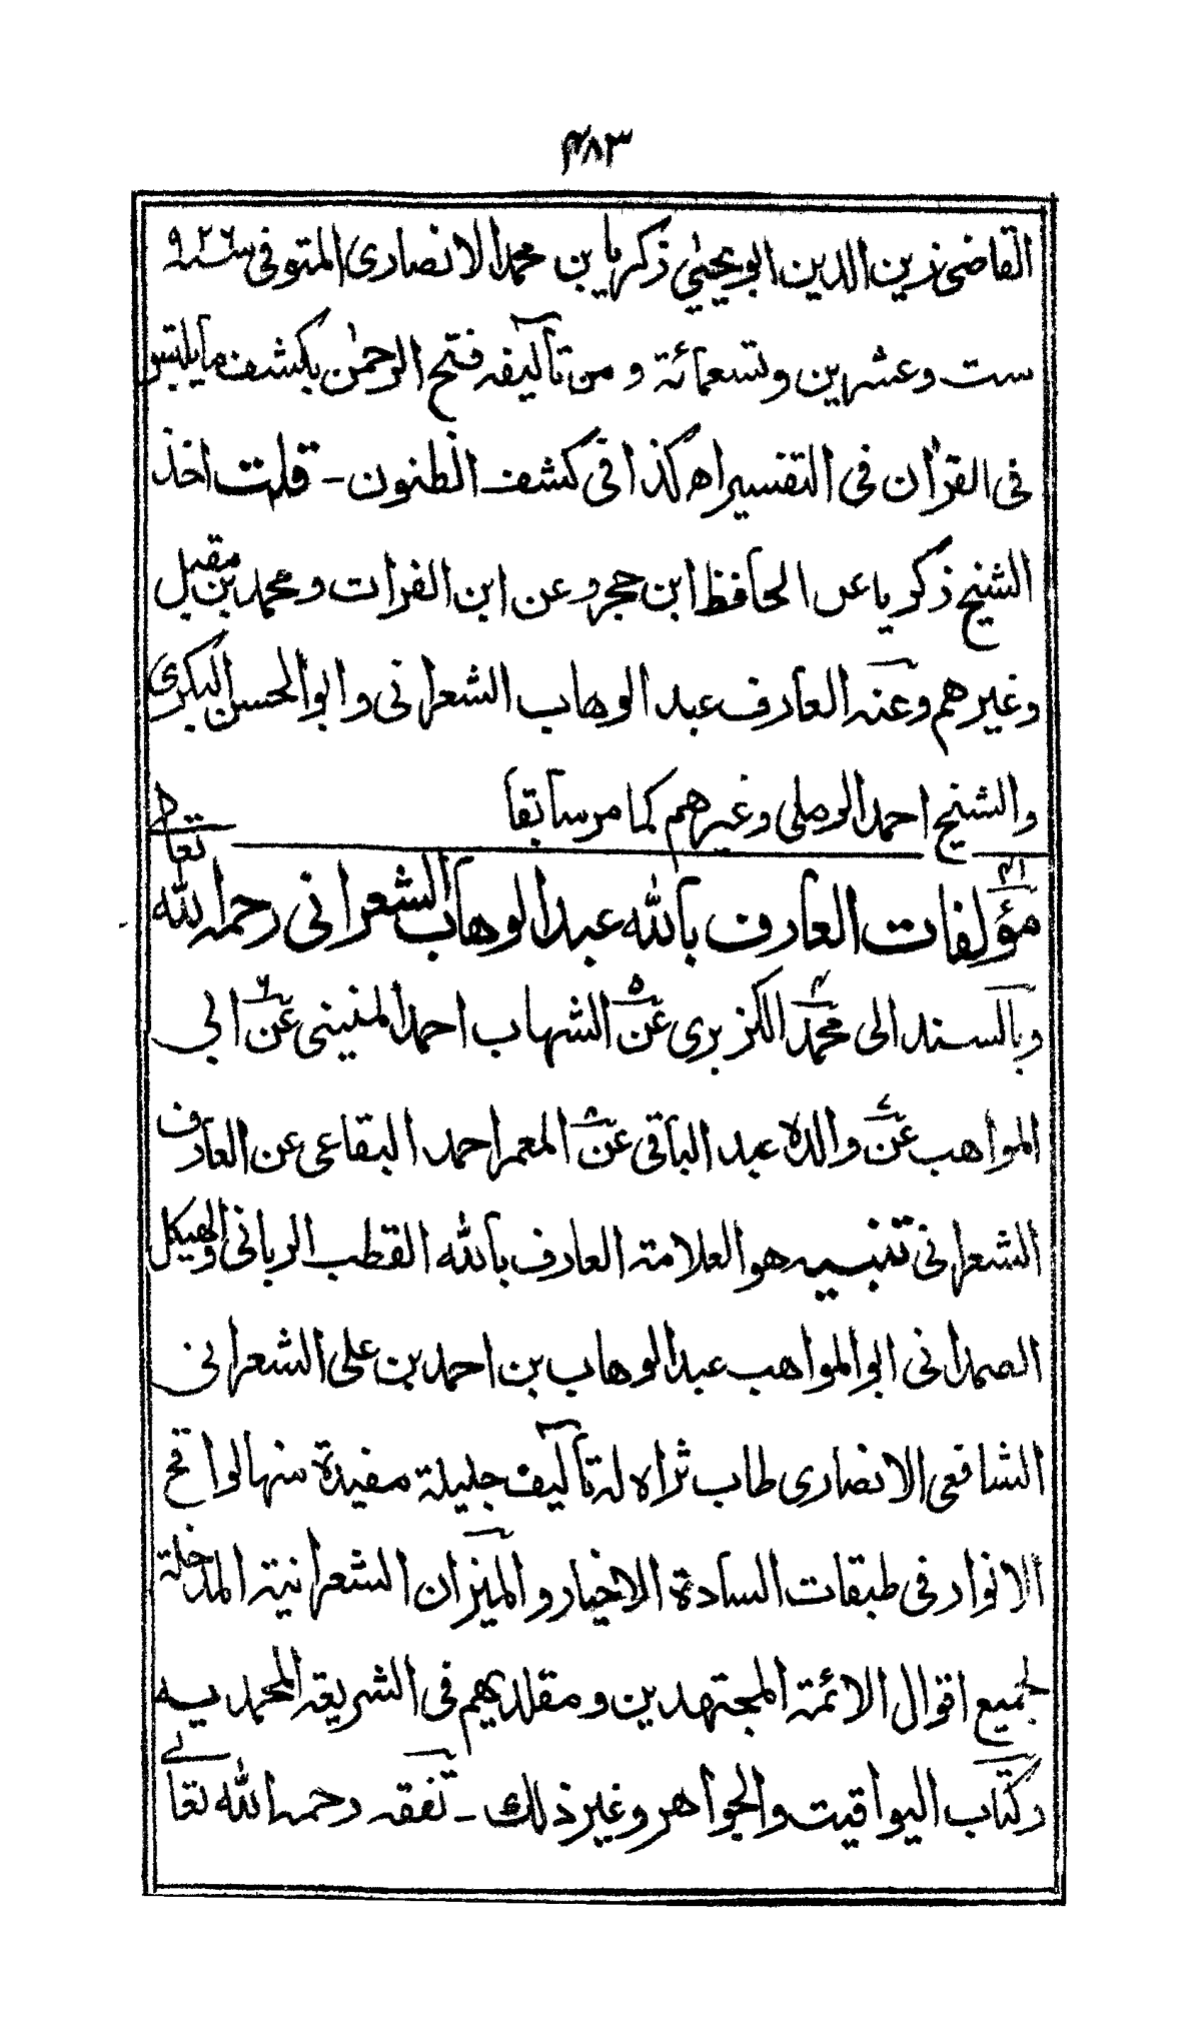 ٤٨٣
القاضی زین الدین ابو یحیٰی زکریا بن محمد الانصاری المتوفی سنہ ٩٢٦
ست وعشرین وتسعمائة ومن تآلیفہ فتح الرحمٰن بکشف مایلتبس
فی القراٰن فی التفسیر اھ کذا فی کشف الظنون - قلت اخذ
الشیخ زکریا عن الحافظ ابن حجر وعن ابن الفرات ومحمد بن مقبل
وغیرھم وعنہ العارف عبد الوھاب الشعرانی وابو الحسن البکری
والشیخ احمد الرملی وغیرھم کما مر سابقا
مؤلفات العارف باللہ عبد الوھاب الشعرانی رحمہ اللہ تعالی
وبالسند الی محمد الکزبری عن الشھاب احمد المنینی عن ابی
المواھب عن والدہ عبد الباقی عن المعمر احمد البقاعی عن العارف
الشعرانی تنبیہ ھو العلامة العارف باللہ القطب الربانی والھیکل
الصمدانی ابو المواھب عبد الوھاب بن احمد بن علی الشعرانی
الشافعی الانصاری طاب ثراہ لہ تآلیف جلیلة مفیدة منھا لواقح
الانوار فی طبقات السادة الاخیار والمیزان الشعرانیة المدخلة
لجمیع اقوال الائمة المجتھدین ومقلدیھم فی الشریعة المحمدیہ
وکتاب الیواقیت والجواھر وغیر ذلک - تفقہ رحمہ اللہ تعالے